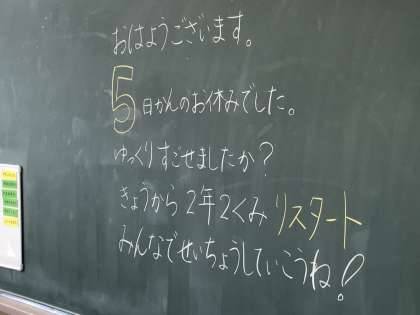 おはようございます。
5日かんのお休みでした。
ゆっくりすごせましたか？
きょうから2年2くみリスタート
みんなでせいちょうしていこうね！